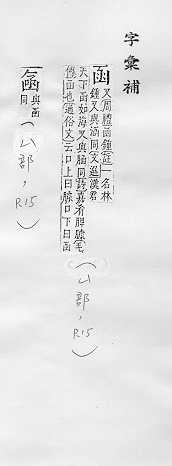 字彙補
函
又周禮函鍾註一名林
鍾又與涵同
天下函如海又與同詩嘉肴脾臄毛
傳函也通俗文云口上曰臄口下曰函
(凵部, R15)
與函
同
(凵部, R15)